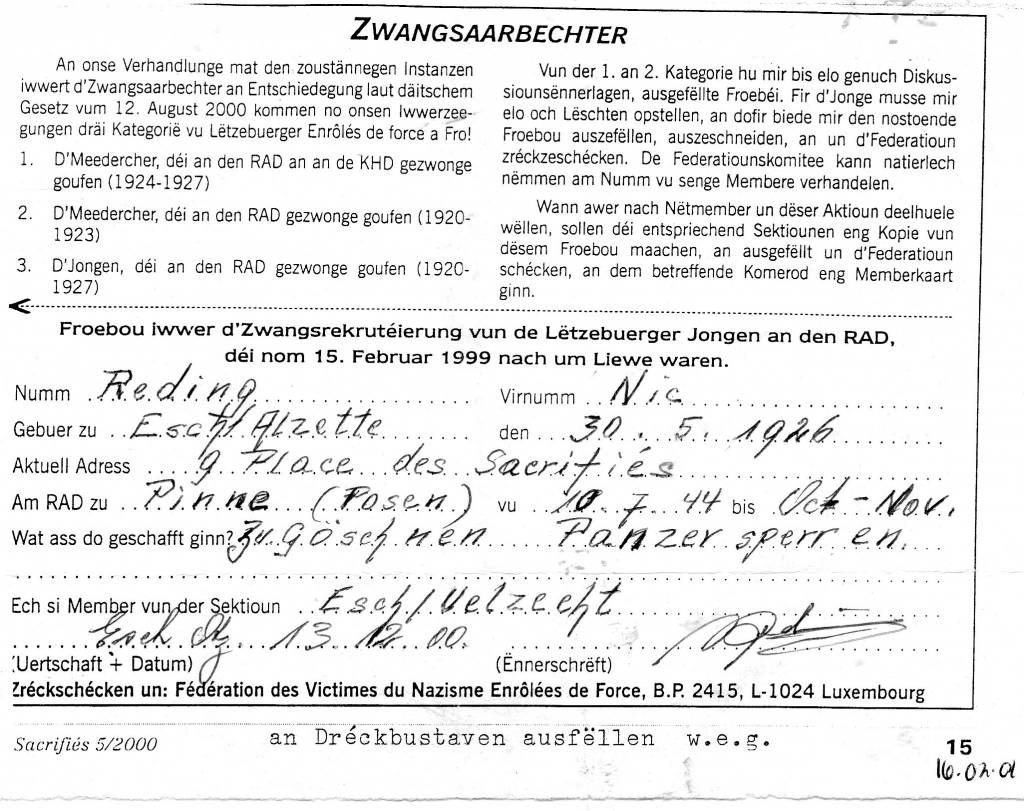 ZWANGSAARBECHTER
An onse Verhandlunge mat den zoustännegen Instanzen
iwwert d'Zwangsaarbechter an Entschiedegung laut däitschem
Gesetz vum 12. August 2000 kommen no onsen Iwwerzee-
gungen dräi Kategorië vu Lëtzebuerger Enrôlés de force a Fro!
1. D'Meedercher, déi an den RAD an an de KHD gezwonge
goufen (1924-1927)
2. D'Meedercher, déi an den RAD gezwonge goufen (1920-
1923)
3. D'Jongen, déi an den RAD gezwonge goufen (1920-
1927)
Vun der 1. an 2. Kategorie hu mir bis elo genuch Diskus-
siounsënnerlagen, ausgefëllte Froebéi. Fir d'Jonge musse mir
elo och Lëschten opstellen, an dofir biede mir den nostoende
Froebou auszefëllen, auszeschneiden, an un d'Federatioun
zréckzeschécken. De Federatiounskomitee kann natierlech
nëmmen am Numm vu senge Membere verhandelen.
Wann awer nach Nëtmember un dëser Aktioun deelhuele
wëllen, sollen déi entspriechend Sektiounen eng Kopie vun
dësem Froebou maachen, an ausgefëllt un d'Federatioun
schécken, an dem betreffende Komerod eng Memberkaart
ginn.
Froebou iwwer d'Zwangsrekrutéierung vun de Lëtzebuerger Jongen an den RAD,
déi nom 15. Februar 1999 nach um Liewe waren.
Numm Reding Virnumm Nic
Gebuer zu Esch/Alzette den 30. 5. 1926
Aktuell Adress 9 Place des Sacrifiés
Am RAD zu Pinne (Posen) vu 10 7 44 bis Oct-Nov.
Wat ass do geschafft ginn? Zu Göschnen Panzersperren.
Ech si Member vun der Sektioun Esch/Uelzecht
Esch 13.12.00.
(Uertschaft + Datum) (Ënnerschrëft)
Zréckschécken un: Fédération des Victimes du Nazisme Enrôlées de Force, B.P. 2415, L-1024 Luxembourg
Sacrifiés 5/2000 an Dréckbustaven ausfëllen w.e.g. 15
16.02.01